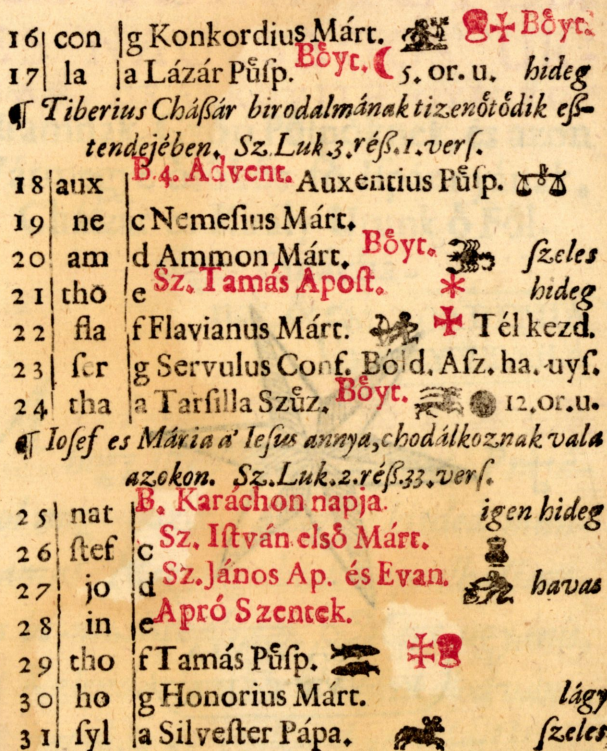 16 con g Konkordius Márt. Bőyt.
17 la a Lázár Pűſp. Bőyt. 5. or. u. hideg
¶ Tiberius Cháßár birodalmának tizenőtődik eß-
tendejében. Sz. Luk. 3. réß. 1. verſ.
18 aux B. 4. Advent. Auxentius Pűſp.
19 ne c Nemeſius Márt.
20 am d Ammon Márt. Bőyt. ſzeles
21 tho e Sz. Tamás Apoſt. hideg
22 fla f Flavianus Márt. Tél kezd.
23 ſer g Servulus Conf. Bóld. Aſz. ha. uyſ.
24 tha a Tarſilla Szűz. Bőyt. 12. or. u.
¶ Ioſef es Mária a' Ieſus annya, chodálkoznak vala
azokon. Sz. Luk. 2. réß. 33. verſ.
25 nat B. Karáchon napja. igen hideg
26 ſtef c Sz. Iſtván elsõ Márt.
27 jo d Sz. János Ap. és Evan. havas
28 in e Apró Szentek.
29 tho f Tamás Pűſp.
30 ho g Honorius Márt. lágy
31 ſyl a Silveſter Pápa. ſzeles